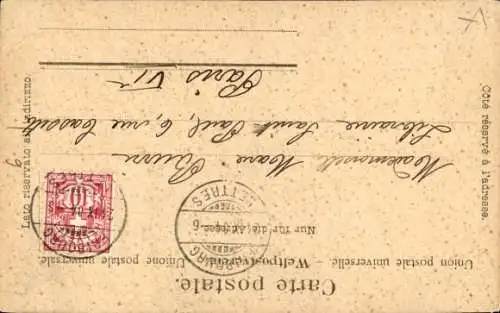 Carte postale.
Union postale universelle. – Weltpostverein. – Unione postale universale.
Nur für die Adresse.
Côté réservé à l'adresse.
Lato riservato all'indirizzo.
LETTRES
10
Mademoiselle Marie
Librairie Saint-Paul, 6, rue Cassette
Paris VIe